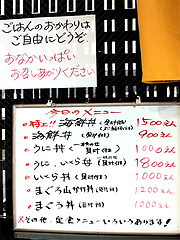 ごはんのおかわりは
ご自由にどうぞ
おなかいっぱい
お召しあがりください
今日のメニュー
特上 海鮮丼 1500えん
海鮮丼 900えん
うに丼 1000えん
うに、いくら丼 1800えん
いくら丼 1000えん
まぐろ山かけ丼 1200えん
まぐろ丼 1000えん
その他、定食メニューいろいろあります!